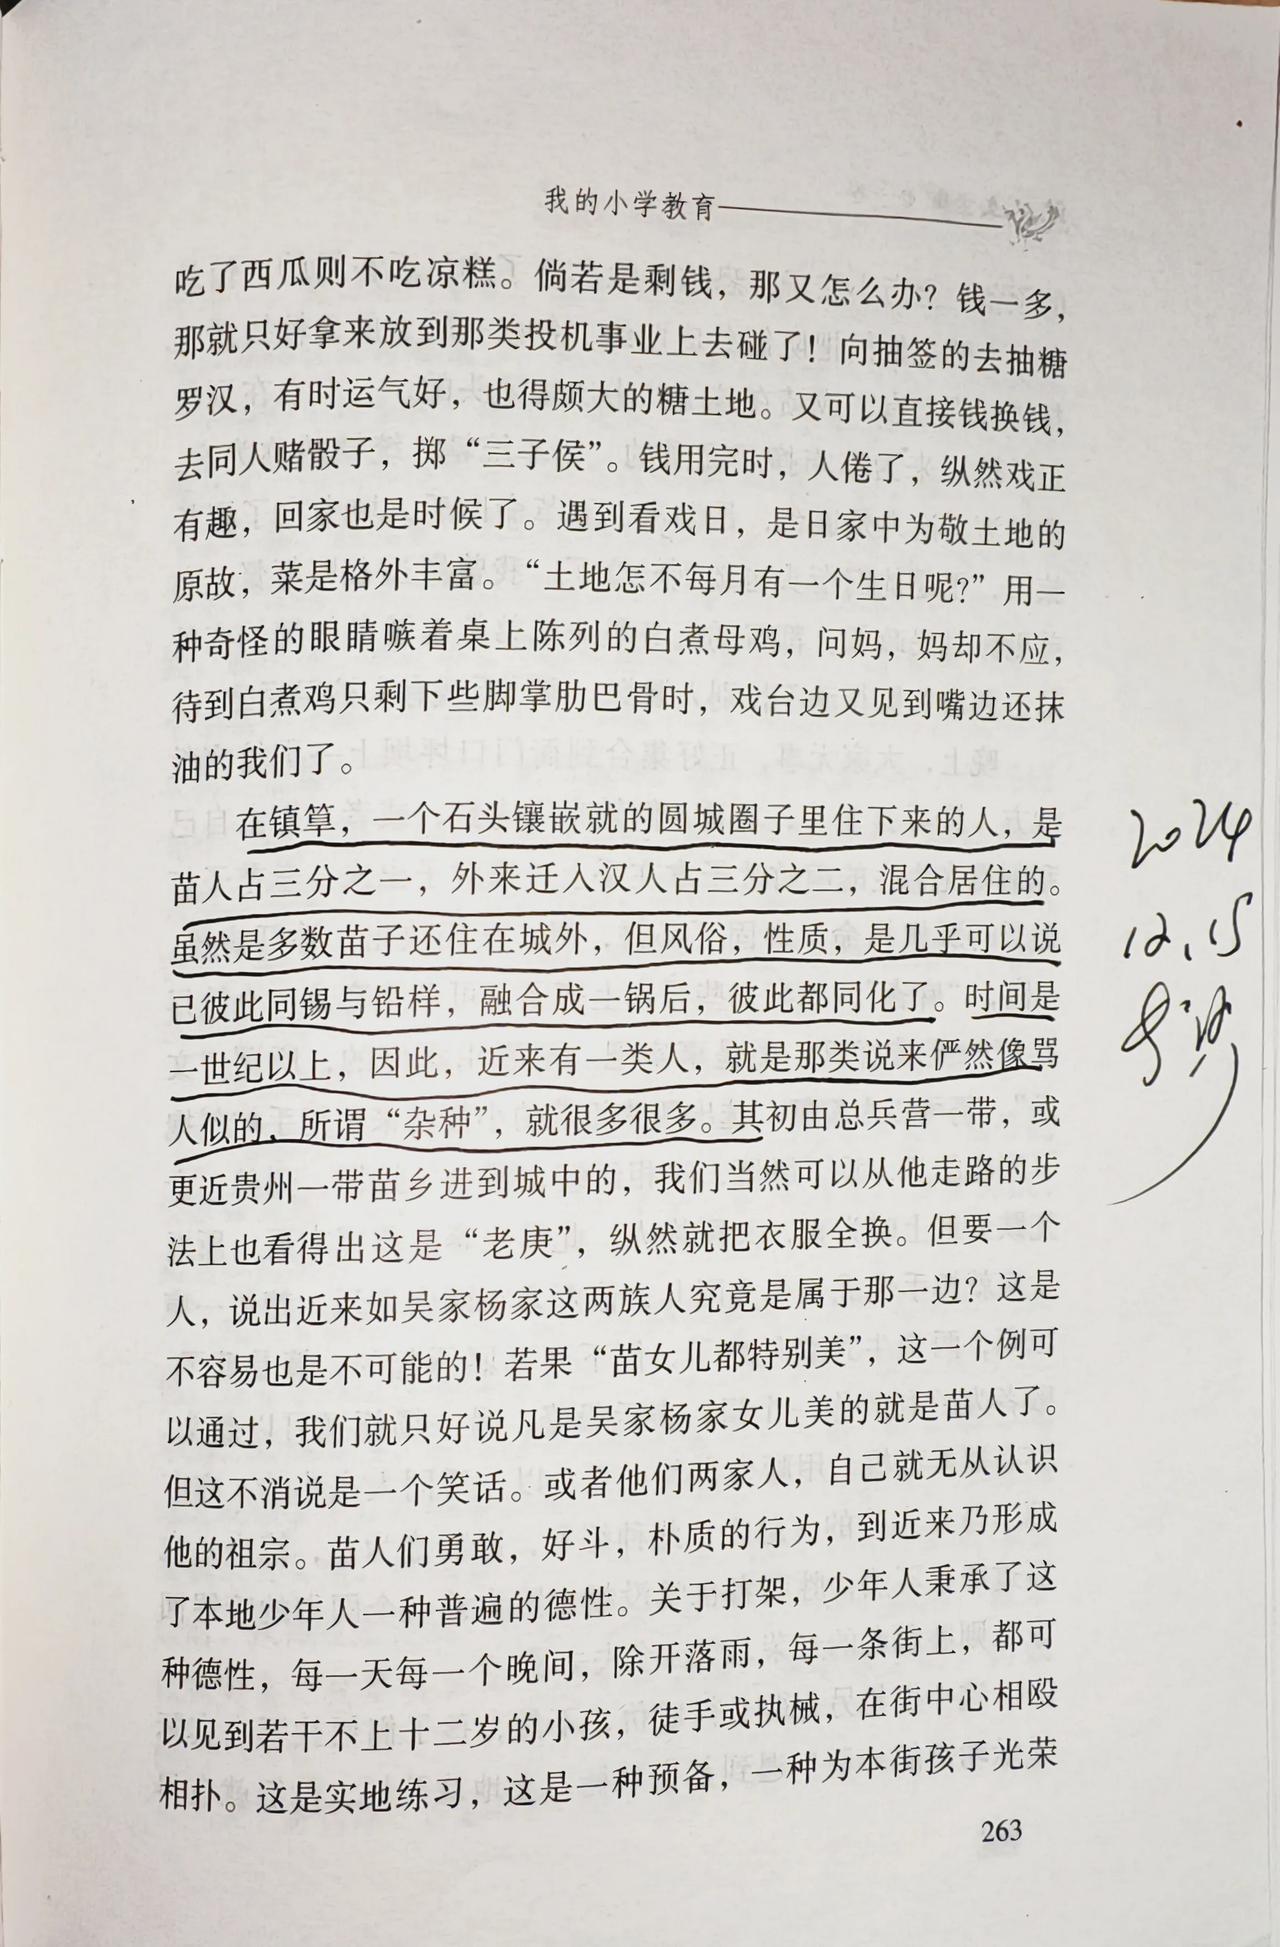 我的小学教育
吃了西瓜则不吃凉糕。倘若是剩钱，那又怎么办？钱一多，
那就只好拿来放到那类投机事业上去碰了！向抽签的去抽糖
罗汉，有时运气好，也得颇大的糖土地。又可以直接钱换钱，
去同人赌骰子，掷“三子侯”。钱用完时，人倦了，纵然戏正
有趣，回家也是时候了。遇到看戏日，是日家中为敬土地的
原故，菜是格外丰富。“土地怎不每月有一个生日呢？”用一
种奇怪的眼睛嗾着桌上陈列的白煮母鸡，问妈，妈却不应，
待到白煮鸡只剩下些脚掌肋巴骨时，戏台边又见到嘴边还抹
油的我们了。
在镇筸，一个石头镶嵌就的圆城圈子里住下来的人，是
苗人占三分之一，外来迁入汉人占三分之二，混合居住的。
虽然是多数苗子还住在城外，但风俗，性质，是几乎可以说
已彼此同锡与铅样，融合成一锅后，彼此都同化了。时间是
一世纪以上，因此，近来有一类人，就是那类说来俨然像骂
人似的，所谓“杂种”，就很多很多。其初由总兵营一带，或
更近贵州一带苗乡进到城中的，我们当然可以从他走路的步
法上也看得出这是“老庚”，纵然就把衣服全换。但要一个
人，说出近来如吴家杨家这两族人究竟是属于那一边？这是
不容易也是不可能的！若果“苗女儿都特别美”，这一个例可
以通过，我们就只好说凡是吴家杨家女儿美的就是苗人了。
但这不消说是一个笑话。或者他们两家人，自己就无从认识
他的祖宗。苗人们勇敢，好斗，朴质的行为，到近来乃形成
了本地少年人一种普遍的德性。关于打架，少年人秉承了这
种德性，每一天每一个晚间，除开落雨，每一条街上，都可
以见到若干不上十二岁的小孩，徒手或执械，在街中心相殴
相扑。这是实地练习，这是一种预备，一种为本街孩子光荣
263
2024
12.15